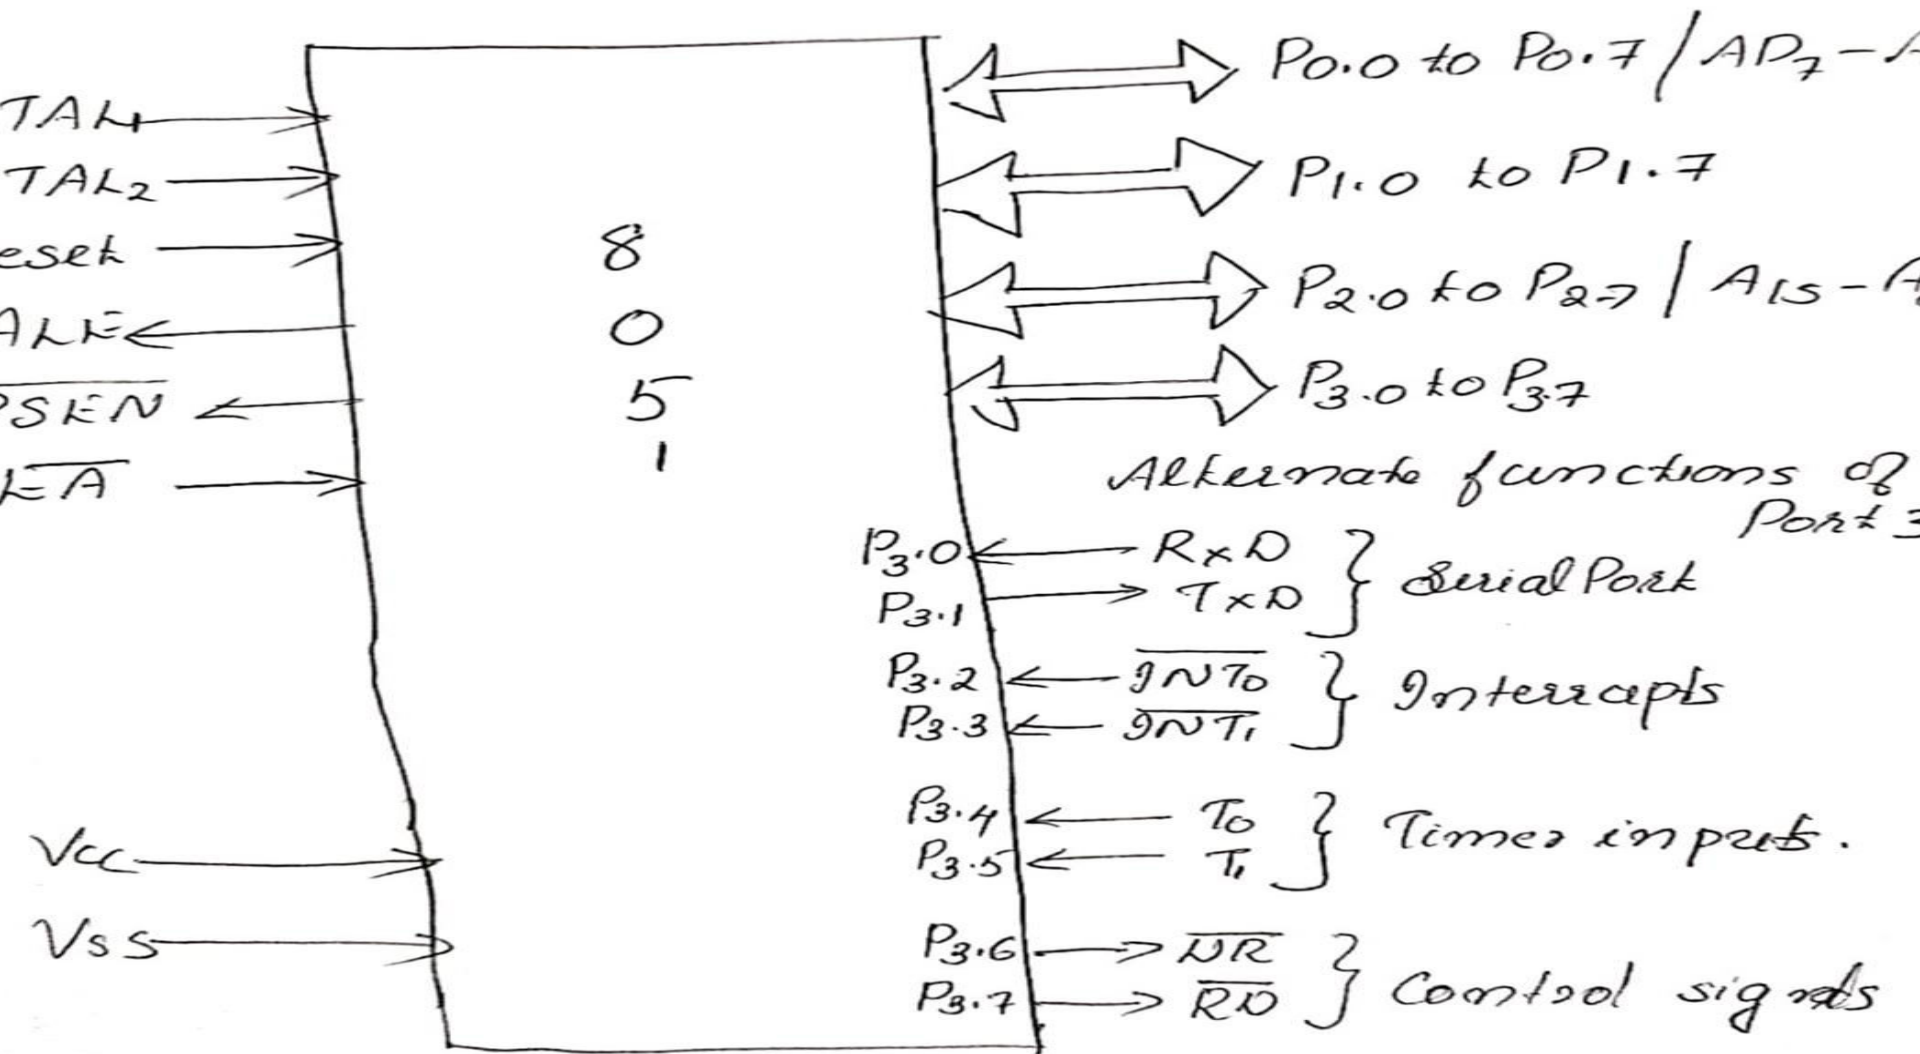 TAL1
TAL2
eset
ALE
PSEN
EA
Vcc
Vss
8
0
5
1
P0.0 to P0.7 / AD7 -
P1.0 to P1.7
P2.0 to P2.7 / A15 - A
P3.0 to P3.7
Alternate functions of
Port 3
P3.0 RxD
P3.1 TxD
Serial Port
P3.2 INT0
P3.3 INT1
Interrupts
P3.4 T0
P3.5 T1
Timer inputs.
P3.6 WR
P3.7 RD
Control signals